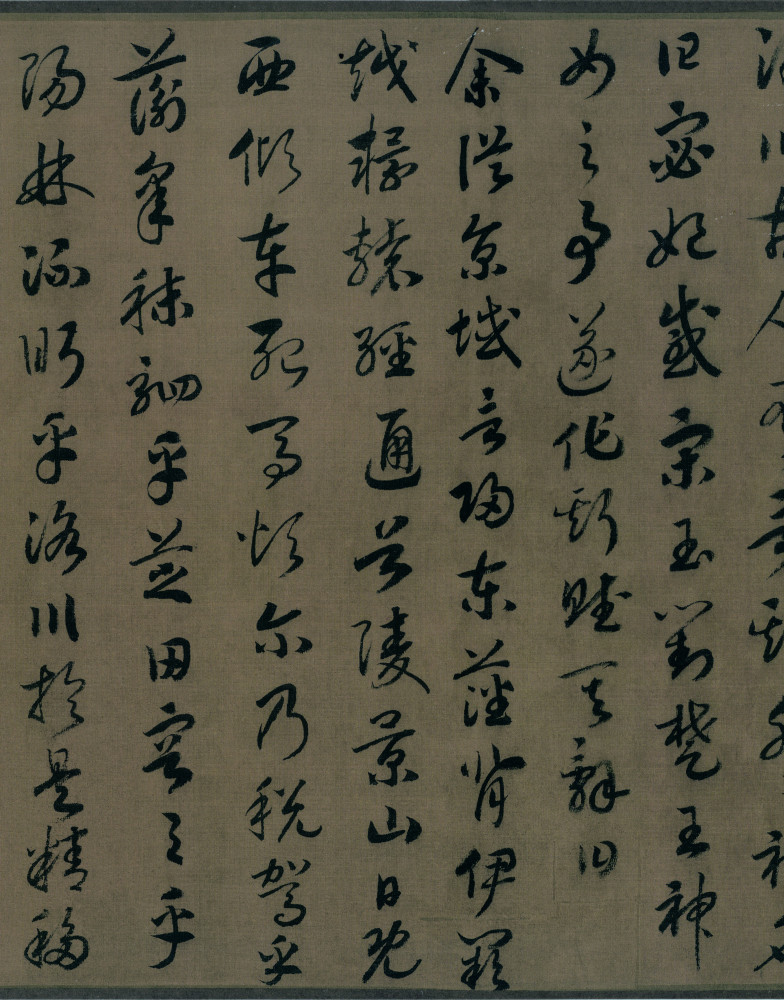 曰宓妃感宋玉對楚王神
女之事遂作斯賦其辭曰
余從京域言歸東藩背伊闕
越轘轅經通谷陵景山日既
西傾車殆馬煩尔乃稅駕乎
蘅皋秣駟乎芝田容与乎
陽林流眄乎洛川於是精移